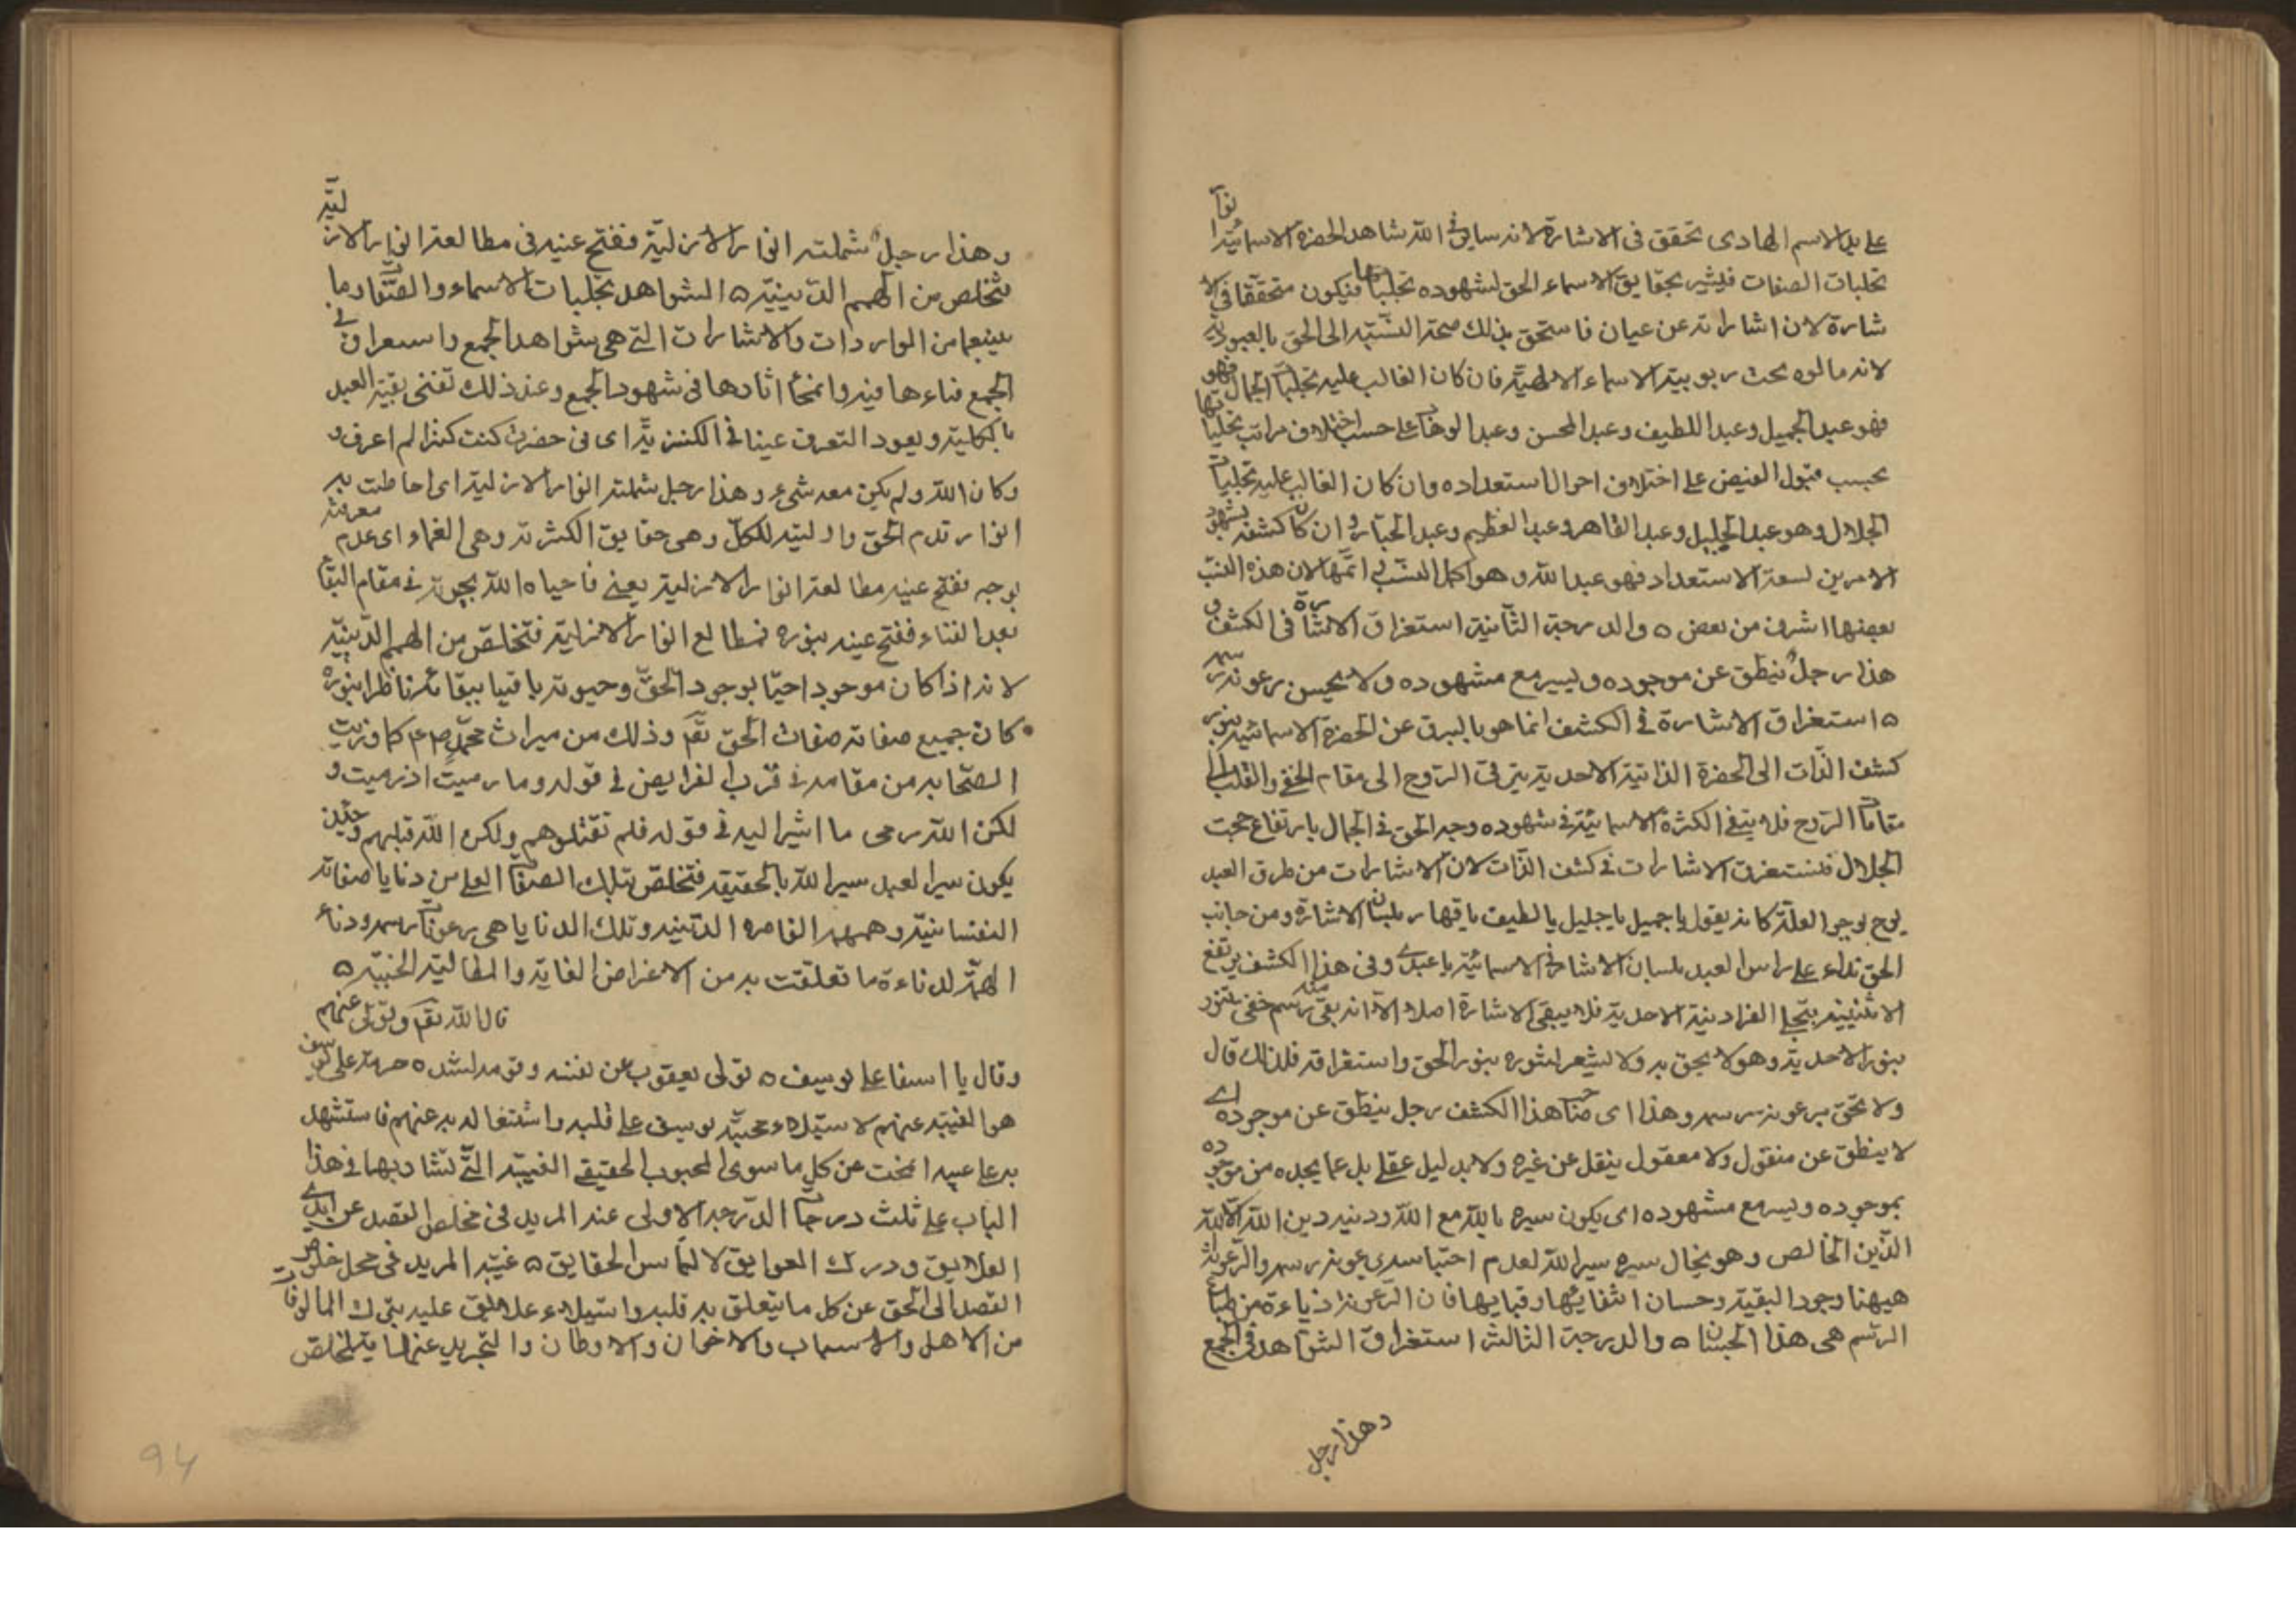 على يد الاسم الهادى تحقق فى الاشارة لانه سابق فى الله شاهد الحضرة الاسمائية انوار
تجليات الصفات فيشير بحقايق الاسماء الحق لشهوده تجلياتها فيكون متحققا فى الا
شارة لان اشاراته عن عيان فاستحق بذلك صحة النسبة الى الحق بالعبودية
لانه مالوه تحت ربوبية الاسماء الالهية فان كان الغالب عليه تجليات الجمال فهو
فهو عبد الجميل وعبد اللطيف وعبد المحسن وعبد الوهاب على حسب اختلاف مراتب تجلياتها
بحسب قبول الفيض على اختلاف احوال استعداده وان كان الغالب عليه تجليات
الجلال وهو عبد الجليل وعبد القاهر وعبد العظيم وعبد الجبار وان كان كشفه بشهود
الامرين لسعة الاستعداد فهو عبد الله وهو اكمل النسب اتمها لان هذه النسب
بعضها اشرف من بعض ه والدرجة الثانية استغراق الاشارة فى الكشف و
هذا رجل ينطق عن موجوده ويسير مع مشهوده ولا يحس برعونة رسمه
ه استغراق الاشارة فى الكشف انما هو بالبرق عن الحضرة الاسمائية بنور
كشف الذات الى الحضرة الذاتية الاحدية بترقى الروح الى مقام الخفى والقلب الى
مقامات الروح فلا يبقى الكثرة الاسمائية فى شهوده وجه الحق فى الجمال بارتفاع حجب
الجلال فتستغرق الاشارات فى كشف الذات لان الاشارات من طرف العبد
يوح بوجود العلة كانه يقول يا جميل يا جليل يا لطيف يا قهار بلسان الاشارة ومن جانب
الحق نداء على راس العبد بلسان الاشارة الاسمائية يا عبدى وفى هذا الكشف يرتفع
الاثنينية بتجلى الفردانية الاحدية فلا يبقى الاشارة اصلا الا انه بقى منه رسم خفى تنور
بنور الاحدية وهو لا يحق به ولا يشعر لتنوره بنور الحق واستغراقه فلذلك قال
ولا يحق برعونة رسمه وهذا اى صاحب هذا الكشف رجل ينطق عن موجوده اى
لا ينطق عن منقول ولا معقول ينقل عن غيره ولا بدليل عقلى بل عما يجده من موجوده
بموجوده ويسير مع مشهوده اى يكون سيره بالله مع الله ودينه دين الله الا لله
الدين الخالص وهو بحال سيره سير الله لعدم احتباسه برعونة رسمه والرعونة
هيهنا وجود البقية وحسان انتفائها وقبايها فان الرعونة رذاءة من طباع
الرسم هى هذا الحسبان ه والدرجة الثالثة استغراق الشواهد فى الجمع
وهذا رجل
وهذا رجل شملته انوار الازلية ففتح عينه فى مطالعة انوار الازلية
فتخلص من الهمم الدنيئة ه الشواهد تجليات الاسماء والصفات وما
بينهما من الواردات والاشارات التى هى شواهد الجمع واستغراق فى
الجمع فناءها فيه وانمحاء اثارها فى شهود الجمع وعند ذلك تفنى بقية العبد
بالكلية ويعود التعرف عينا فى الكنزية اى فى حضرت كنت كنزا لم اعرف و
وكان الله ولم يكن معه شئ وهذا رجل شملته انوار الازلية اى احاطت به
انوار قدم الحق واوليته للكل وهى حقايق الكنزية وهى العماء اى عدم معرفته
بوجه ففتح عينه مطالعة انوار الازلية يعنى فاحياه الله بحيوته فى مقام البقاء
بعد الفناء ففتح عينه بنوره فطالع انوار الازلية فتخلص من الهمم الدنيئة
لانه اذا كان موجودا حيا بوجود الحق وحيوته باقيا ببقائه ناظرا بنوره
كان جميع صفاته صفات الحق تقم وذلك من ميراث محمد صم كما ورثت
الصحابه من مقامه فى قرب الفرايض فى قوله وما رميت اذ رميت و
لكن الله رمى ما اشير اليه فى قوله فلم تقتلوهم ولكن الله قتلهم وحينئذ
يكون سير العبد سير الله بالحقيقه فتخلص بتلك الصفات العلى من دنايا صفاته
النفسانية وهممه القاصره الدنيئه وتلك الدنايا هى رعونات رسمه ودناءة
الهمة لدناءة ما تعلقت به من الاغراض الفانية والمطالب الخبيثه ه
قال الله تقم وتولى عنهم
وقال يا اسفا على يوسف ه تولى يعقوب عن نفسه وقومه لشدة حزنه على يوسف
هو الغيبة عنهم لاستيلاء محبة يوسف على قلبه واشتغاله به عنهم فاستشهد
به على غيبه المحب عن كل ما سوى المحبوب الحقيقى الغيبة التى يشار بها فى هذا
الباب على ثلث درجات الدرجة الاولى عند المريد فى مخلص القصد عن ايدى
العلايق ودرك العوايق لالتماس الحقايق ه غيبة المريد فى محل خلوص
القصد الى الحق عن كل ما يتعلق به قلبه واستيلاء علايق عليه بترك المالوفات
من الاهل والاسباب والاخوان والاوطان والتجريد عنها بتخلص
94